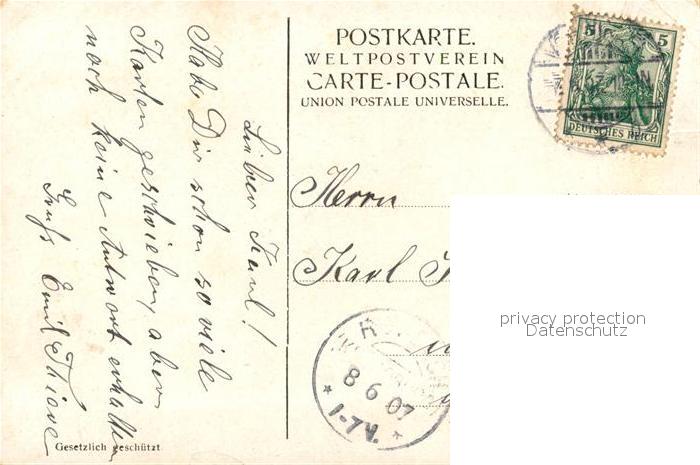 POSTKARTE.
WELTPOSTVEREIN
CARTE-POSTALE.
UNION POSTALE UNIVERSELLE.
5 5
DEUTSCHES REICH
Lieber Karl!
Habe Dir schon so viele
Karten geschrieben, aber
noch keine Antwort erhalten
Gruß Emil Thieve
Herrn
Karl
8 6 07
1-7V.
privacy protection
Datenschutz
Gesetzlich geschützt